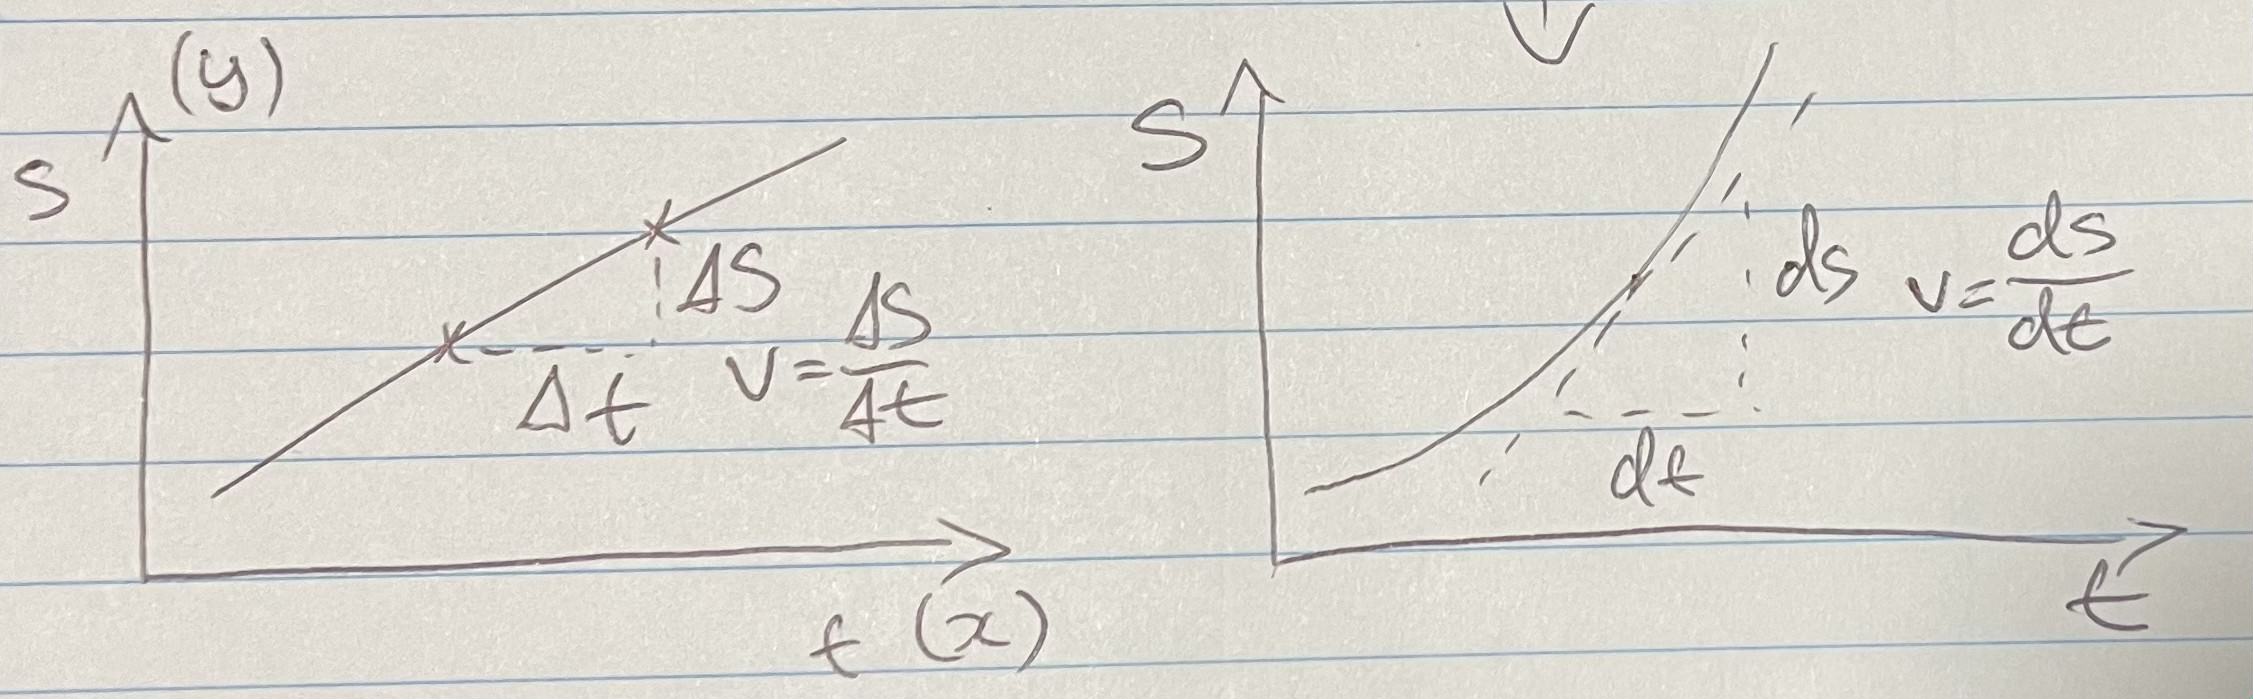 (y)
S
ΔS
Δt
v = ΔS/Δt
t (x)
S
ds
dt
v = ds/dt
t